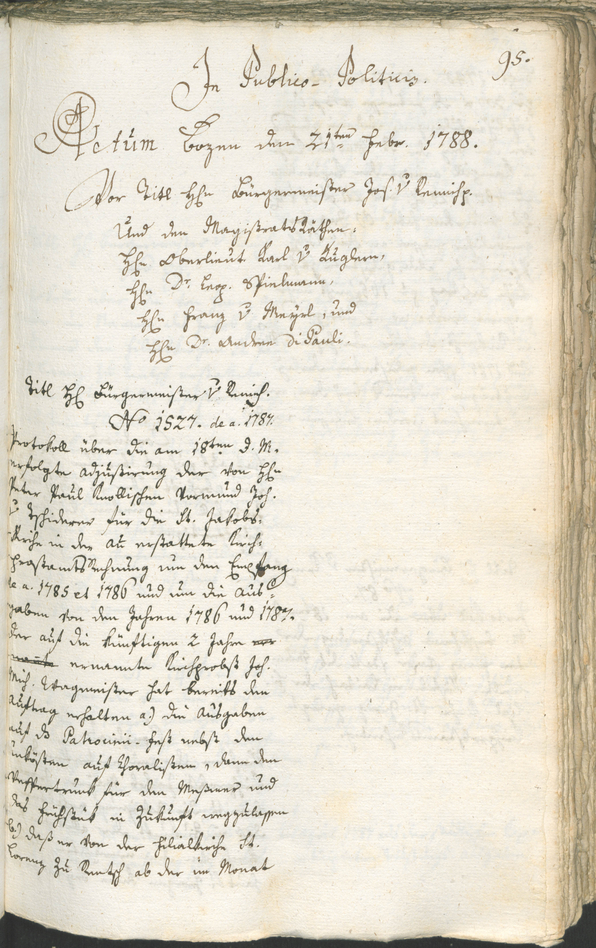 95.
In Publico-Politicis.
Actum Bozen den 21ten Febr. 1788.
Vor Titl Hhn Bürgermeister Jos. v Remich.
Und den Magistrats Räthen,
Hhn Oberlieut. Karl v Kuglern,
Hhn Dr. Leop. Spielmann,
Hhn Franz v Mayrl, und
Hhn Dr. Andree Di Pauli.
Titl Hh Bürgermeister v Remich.
No 1527. de a. 1787.
Protokoll über die am 18ten d. M.
erfolgte adjustirung der von Hhn
Peter Paul Knollischen Vormund Joh.
v Tschiderer für die St. Jakobs-
Kirche in der Au erstattete Kirch-
probstamts Rechnung um den Empfang
de a. 1785 et 1786 und um die Aus-
gaben von den Jahren 1786 und 1787.
Der auf die künftigen 2 Jahre
ernannte Kirchprobst Joh.
Mich. Wagmeister hat bereits den
Auftrag erhalten a.) die Ausgaben
auf das Patrocinii-Fest nebst den
Unkösten auf Choralisten, dann den
Vesspertrunk für den Meßner und
das Frühstük in Zukunft wegzulassen
b.) daß er von der Filialkirche St.
Lorenz zu Rentsch ab der im Monat